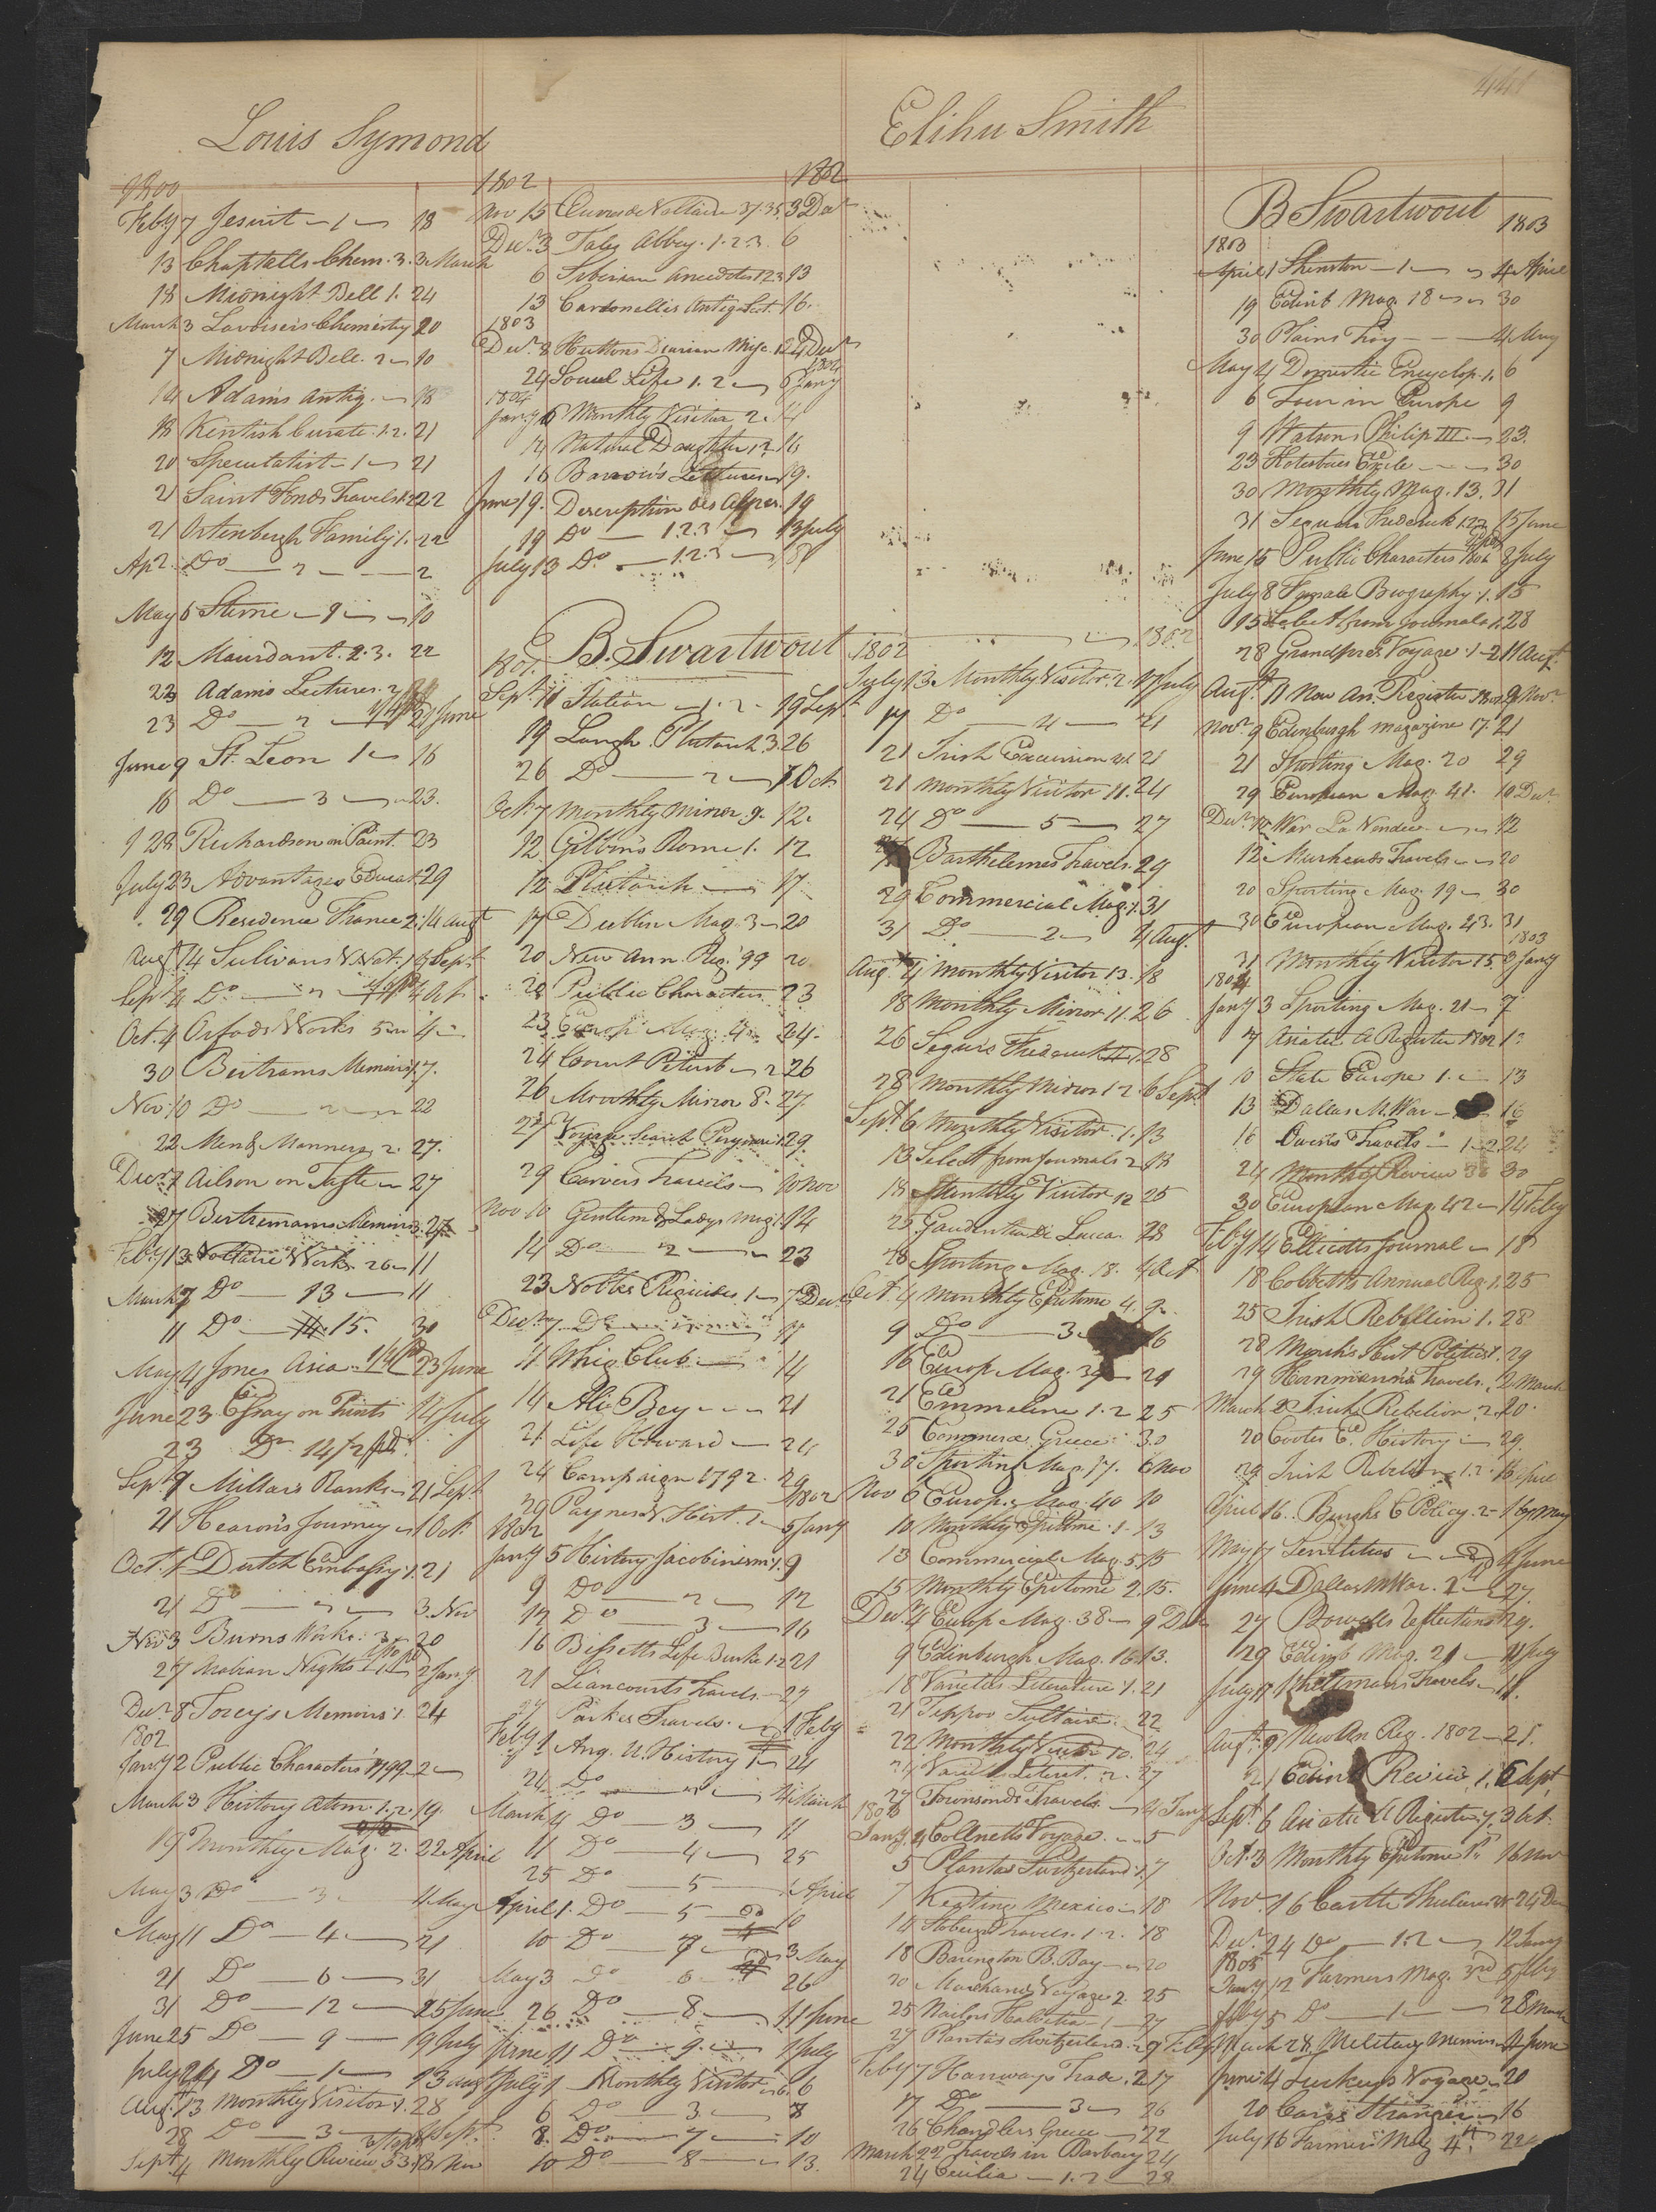 441
Louis Symond
Elihu Smith
1800
Feby 7 Jesuit — 1 — 18
13 Chaptalls Chem. 3. 3 March
18 Midnight Bell 1. 24
March 3 Lavoisiers Chemistry 20
7 Midnight Bell. 2 — 10
14 Adams Antiq. — 18
18 Kentish Curate. 1.2. 21
20 Speculatist — 1 — 21
21 Saint Fonds Travels 1.2 22
21 Ortenburgh Family 1. 22
Ap 2. Do — 2 — 2
May 6 Sterne — 9 — 10
12 Mourdant. 2.3. 22
22 Adams Lectures. 2
23 Do — 2 — 29 June
June 9 St. Leon 1 — 16
16 Do — 3 — 23.
23 Richardson on Paint. 23
July 23 Advantages Educat. 29
29 Residence France 2. 14 Augt
Augt 14 Sulivans V. Nat. 1 4 Sept
Sept 4 Do — 2 — 4 Oct
Oct. 4 Orfords Works 5 — 4
30 Bertrams Memoirs 1. 7.
Nov. 10 Do — 2 — 22
22 Men & Manners. 2. 27.
Decr. 7 Alison on Taste — 27
27 Bertrams Memoirs 3. 27
Feby 13 Voltaire Works 26 — 11
March 7 Do — 13 — 11
11 Do — 15. 30
May 4 Jones Asia 23 June
June 23 Essay on Prints 14 July
23 Do 14/2 pd.
Sept. 9 Millars Ranks — 21 Sept
21 Hearons Journey — 1 Oct.
Oct. 1 Dutch Embassy 1. 21
21 Do — 2 — 3. Nov
Nov 3 Burns Works. 3. 20
27 Arabian Nights 2 Jany
Decr. 8 Torcys Memoirs 1. 24
1802
Jany 2 Public Characters 1799 — 2
March 3 History Atom. 1.2. 19.
19 Monthly Mag. 2. 22 April
May 3 Do — 3 — 11 May
May 11 Do — 4 — 21
21 Do — 6 — 31
31 Do — 12 — 25 June
June 25 Do — 9 — 19 July
July Do — 1 — 13 Aug
Aug. 13 Monthly Visitor 1. 28
28 Do — 3 — Sept.
Sept. 4 Monthly Review 33. 18 Nov
1802 1802
Nov 15 Œuvres de Voltaire 37.38. 3 Decr
Decr. 3 Tales Abbey. 1.2.3. 6
6 Siberian Anecdotes 1.2.3 13
13 Cardonells Antiq. Scot. 16.
1803
Decr. 8 Huttons Diarian Misc. 1.2 24 Decr
1804
24 Social Life 1.2 — 6 Jany
1804
Jany 6 Monthly Visitor 2. 14
14 Natural Daughter 1.2. 16
16 Barrow's Lectures — 19.
June 19. Description des Alpes. 19
19 Do — 1.2.3 — 13 July
July 13 Do. — 1.2.3 —
B. Swartwout
1801.
Sept. 11 Station — 1.2. 19 Sept
19 Langh. Plutarch. 3. 26
26 Do — 2 — 7 Oct.
Oct. 7 Monthly Mirror. 9. 12.
12 Gilbins Rome 1. 12
12 Plutarch — 17
17 Dublin Mag. 3 — 20
20 New Ann. Reg. 99 20
20 Public Characters 23
23 Europ. Mag. 4 24.
24 Court Petersb — 2 26
26 Monthly Mirror 8. 27.
27 Voyage Search Perouse 1. 29.
29 Carvers Travels — 10 Nov
Nov 10 Gentlem & Ladys Mag. 1. 14
14 Do 2 — 23
23 Nobles Regicides. 1 — 7 Decr
Decr. 7 Do — 11
11 Whig Club — 14
14 Ali Bey — 21
21 Life Howard — 24
24 Campaign 1792. 29
1802
29 Paynes N. Hist. 1 — 5 Jany
1802
Jany 5 History Jacobinism 1. 9
9 Do — 2 — 12
12 Do — 3 — 16
16 Bissetts Life Burke 1.2 21
21 Liancourts Travels — 27
27 Parkes Travels. — 1 Feby
Feby 1 Anc. U. History 1 — 24
24 Do — 2 — 4 March
March 4 Do — 3 — 11
11 Do — 4 — 25
25 Do — 5 — 1 April
April 1. Do — 5 10
10 Do — 7 — 3 May
May 3 Do 6 — 26
26 Do — 8 — 11 June
June 11 Do — 9 — 1 July
July 1 Monthly Visitor — 6. 6
6 Do — 3 — 8
8. Do — 7 — 10
10 Do — 8 — 13.
1802 1802
July 13 Monthly Visitor. 2. 17 July
17 Do — 4 — 21
21 Irish Excursion 21
21 Monthly Visitor 11. 24
24 Do — 5 — 27
Barthelemes Travels. 29
29 Commercial Mag. 1. 31
31 Do. — 2 — 4 Aug.
Aug. 4 Monthly Visitor 13. 18
18 Monthly Mirror 11. 26
26 Segurs Frederick 1. 28
28 Monthly Mirror 12. 6 Sept
Sept 6 Monthly Visitor. 1. 13
13 Select from Journals 2 18
18 Monthly Visitor 12 25
25 Gaudentia Di Lucca. 28
28 Sporting Mag. 18. 4 Oct
Oct. 4 Monthly Epitome 4. 9.
9 Do — 3. 16
16 Europ Mag. 39 — 21
21 Emmeline 1.2 25
25 Commerce Greece 30
30 Sporting Mag. 17. 6 Nov
Nov 6 Europ. Mag. 40 10
10 Monthly Epitome. 1. 13
13 Commercial Mag. 5 15
15 Monthly Epitome 2. 15.
Decr. 4 Europ Mag. 38 — 9 Dec
9 Edinburgh Mag. 16. 13.
18 Varieties Literature 1. 21
21 Tippoo Sultain. 22
22 Monthly Visitor 10. 24
24 Varieties Literat. 2. 27
27 Townsends Travels. — 4 Jany
1803
Jany. 4 Collnetts Voyage. — 5
5 Plantas Switzerland. 1. 7
7 Keating Mexico — 18
14 Stobergs Travels. 1.2. 18
18 Barington B. Bay — 20
20 Marchands Voyage 2. 25
25 Nailors Helvetia — 1 — 27
27 Plantas Switzerland. 2 7 Feby
Feby 7 Hanways Trade. 2 17
17 Do — 3 — 26
26 Chandlers Greece — 22
March 22 Travels in Barbary 24
24 Cecilia — 1.2 — 28
B Swartwout
1803 1803
April 1 Shenston — 1 — 4 April
19 Edinb Mag 18 — 30
30 Plains Troy — 4 May
May 4 Domestic Encyclop. 1. 6
6 Tour in Europe 9
9 Watsons Philip III. — 23.
23 Kotzebues Exile — 30
30 Monthly Mag. 13. 31
31 Segurs Frederick 1.2.3 15 June
June 15 Public Characters 8 July
July 8 Female Biography. 1. 15
15 Select from Journals 1. 28
28 Grandpres Voyage. 1 — 2 11 Augt.
Augt 11 New An. Register 9 Novr.
Novr. 9 Edinburgh Magazine 17. 21
21 Sporting Mag. 20 29
29 European Mag. 41. 10 Decr.
Decr. 10 War La Vendee — 12
12 Muirheads Travels — 20
20 Sporting Mag. 19 — 30
30 European Mag. 43. 31
1803
31 Monthly Visitor 15. 3 Jany
1804
Jany 3 Sporting Mag. 21 — 7
7 Asiatic A Register 1802 1
10 State Europe 1. — 13
13 Dallas M. War — 16
16 Owens Travels — 1–2 24
24 Monthly Review 38 30
30 European Mag. 42 — 14 Feby
Feby 14 Ellicotts Journal — 18
18 Cobbetts Annual Reg. 1. 25
25 Irish Rebellion 1. 28
28 Marsh's Hist Politics 1. 29
29 Hornmann's Travels. 2 March
March 2 Irish Rebelion. 2. 20.
20 Cootes E. History — 29.
29 Irish Rebelion 1.2. 16 April
April 16. Burghs E Policy. 2 — 1 May
May 17 Senilities — 4 June
June 4 Dallas M War. 2 — 27.
27 Bowells Reflections 29.
29 Edinb Mag. 21 — 11 July
July 11 Travels — 11.
Augt. 9 New An Reg. 1802 — 21.
21 Edinb Review, 1. 6 Sept
Sept. 6 Asiatic A Register 7. 3 Oct.
Oct. 3 Monthly Epitome 16 Nov
Nov. 16 Castle 24 Dec
Decr. 24 Do — 1.2 — 12 Jany
1805
Jany 12 Farmers Mag. 3rd 5 Feby
Feby 5 Do — 1 — 28 March
March 28 Military Memoirs — 4 June
June 4 Tuckeys Voyage. — 20
20 Carrs Stranger — 16
July 16 Farmers Mag 4th. 22